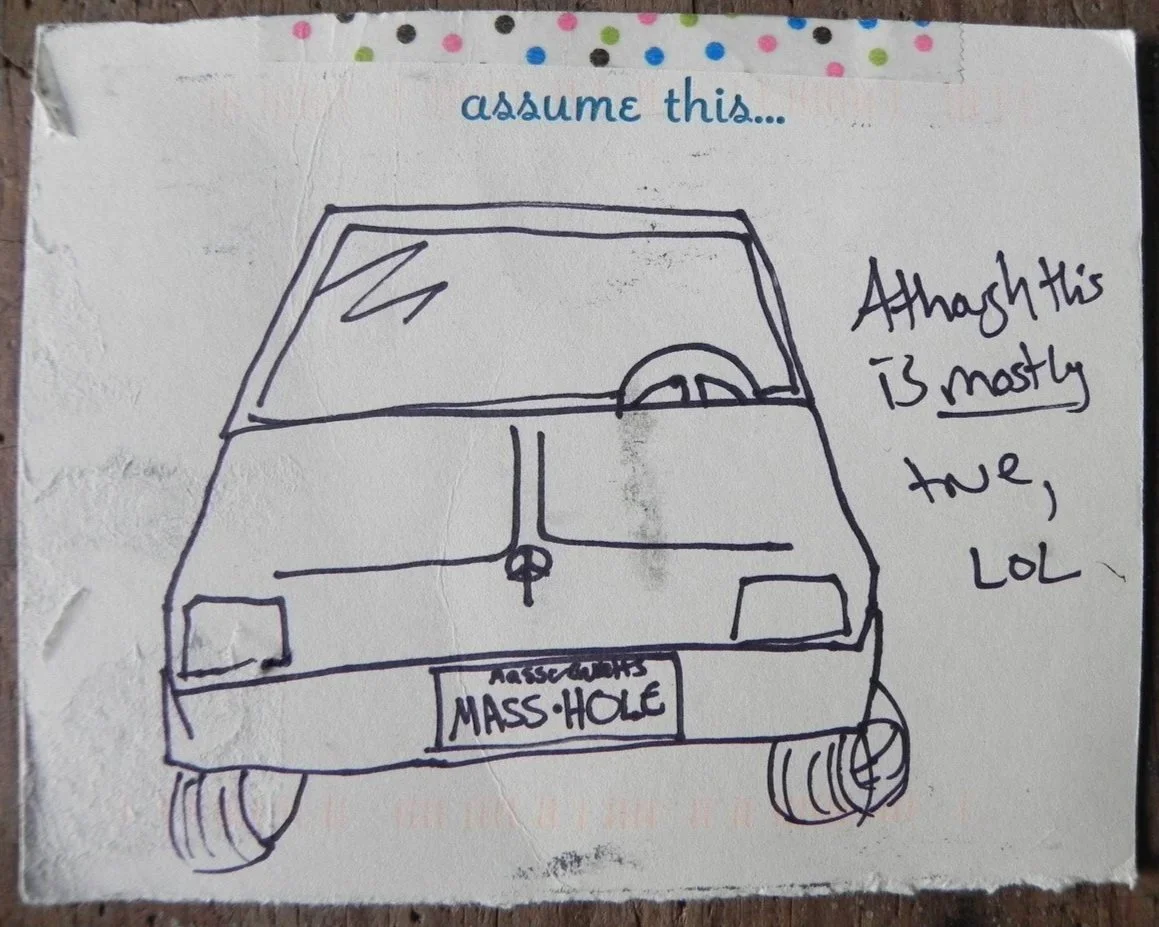 assume this...
Although this
is mostly
true,
LOL
Massachusetts
MASS·HOLE